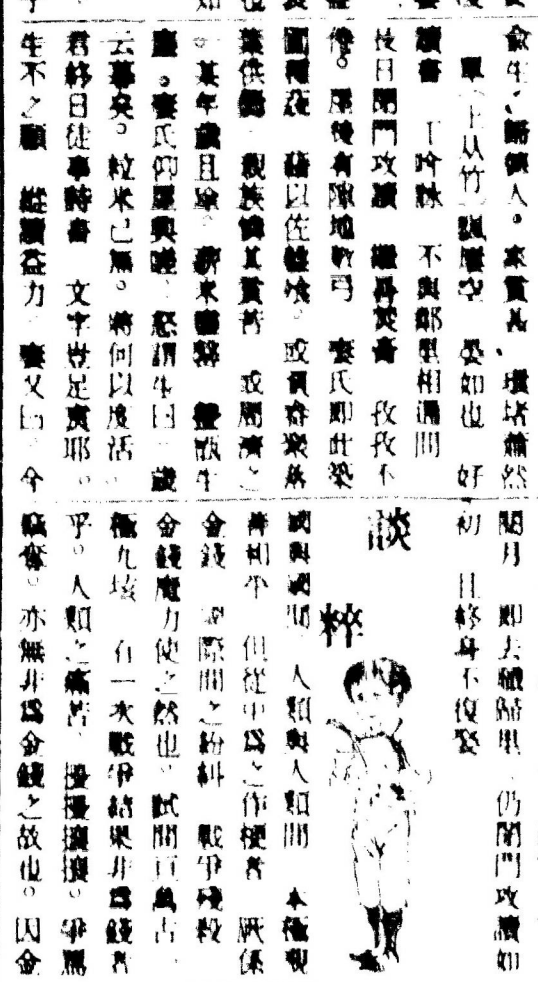 俞生、歸德人。家貧甚、環堵蕭然
單(上从竹)瓢屢空 晏如也 好
讀書 工吟詠 不與鄰里相通問
閉門攻讀 繼晷焚膏 孜孜不
倦。屋後有隙地數弓 妻氏即此築
圃種蔬 藉以佐饔飧 或
葉供爨 親族憐其貧苦 或周濟之
。某年歲且除。薪米 甑生
塵。妻氏仰屋興嗟 怒謂生曰 歲
云暮矣。粒米已無。將何以度活
君終日徒事詩書 文字豈足煮耶。
生不之顧 縱讀益力 妻又曰 今
閱月 即去職歸里 仍閉門攻讀如
初 且終身不復娶
談粹
國與國間 人類與人類間 本極親
善和平 但從中爲之作梗者 厥係
金錢 國際間之紛糾 戰爭殘殺
金錢魔力使之然也 試問亘萬古
極九垓 有一次戰爭結果非爲錢者
乎。人類之痛苦、擾擾攘攘。爭
竊奪。亦無非爲金錢之故也。因金